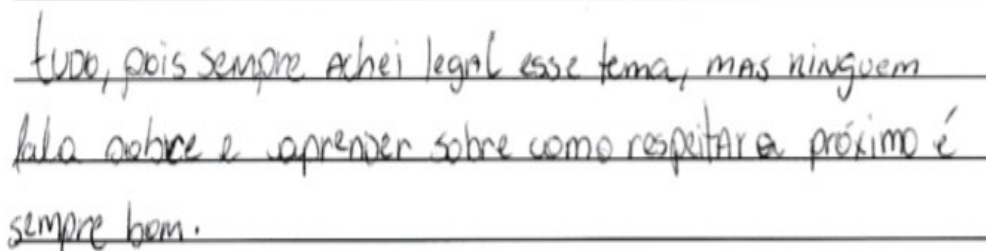 tudo, pois sempre achei legal esse tema, mas ninguem
fala sobre e aprender sobre como respeitar o próximo é
sempre bom.